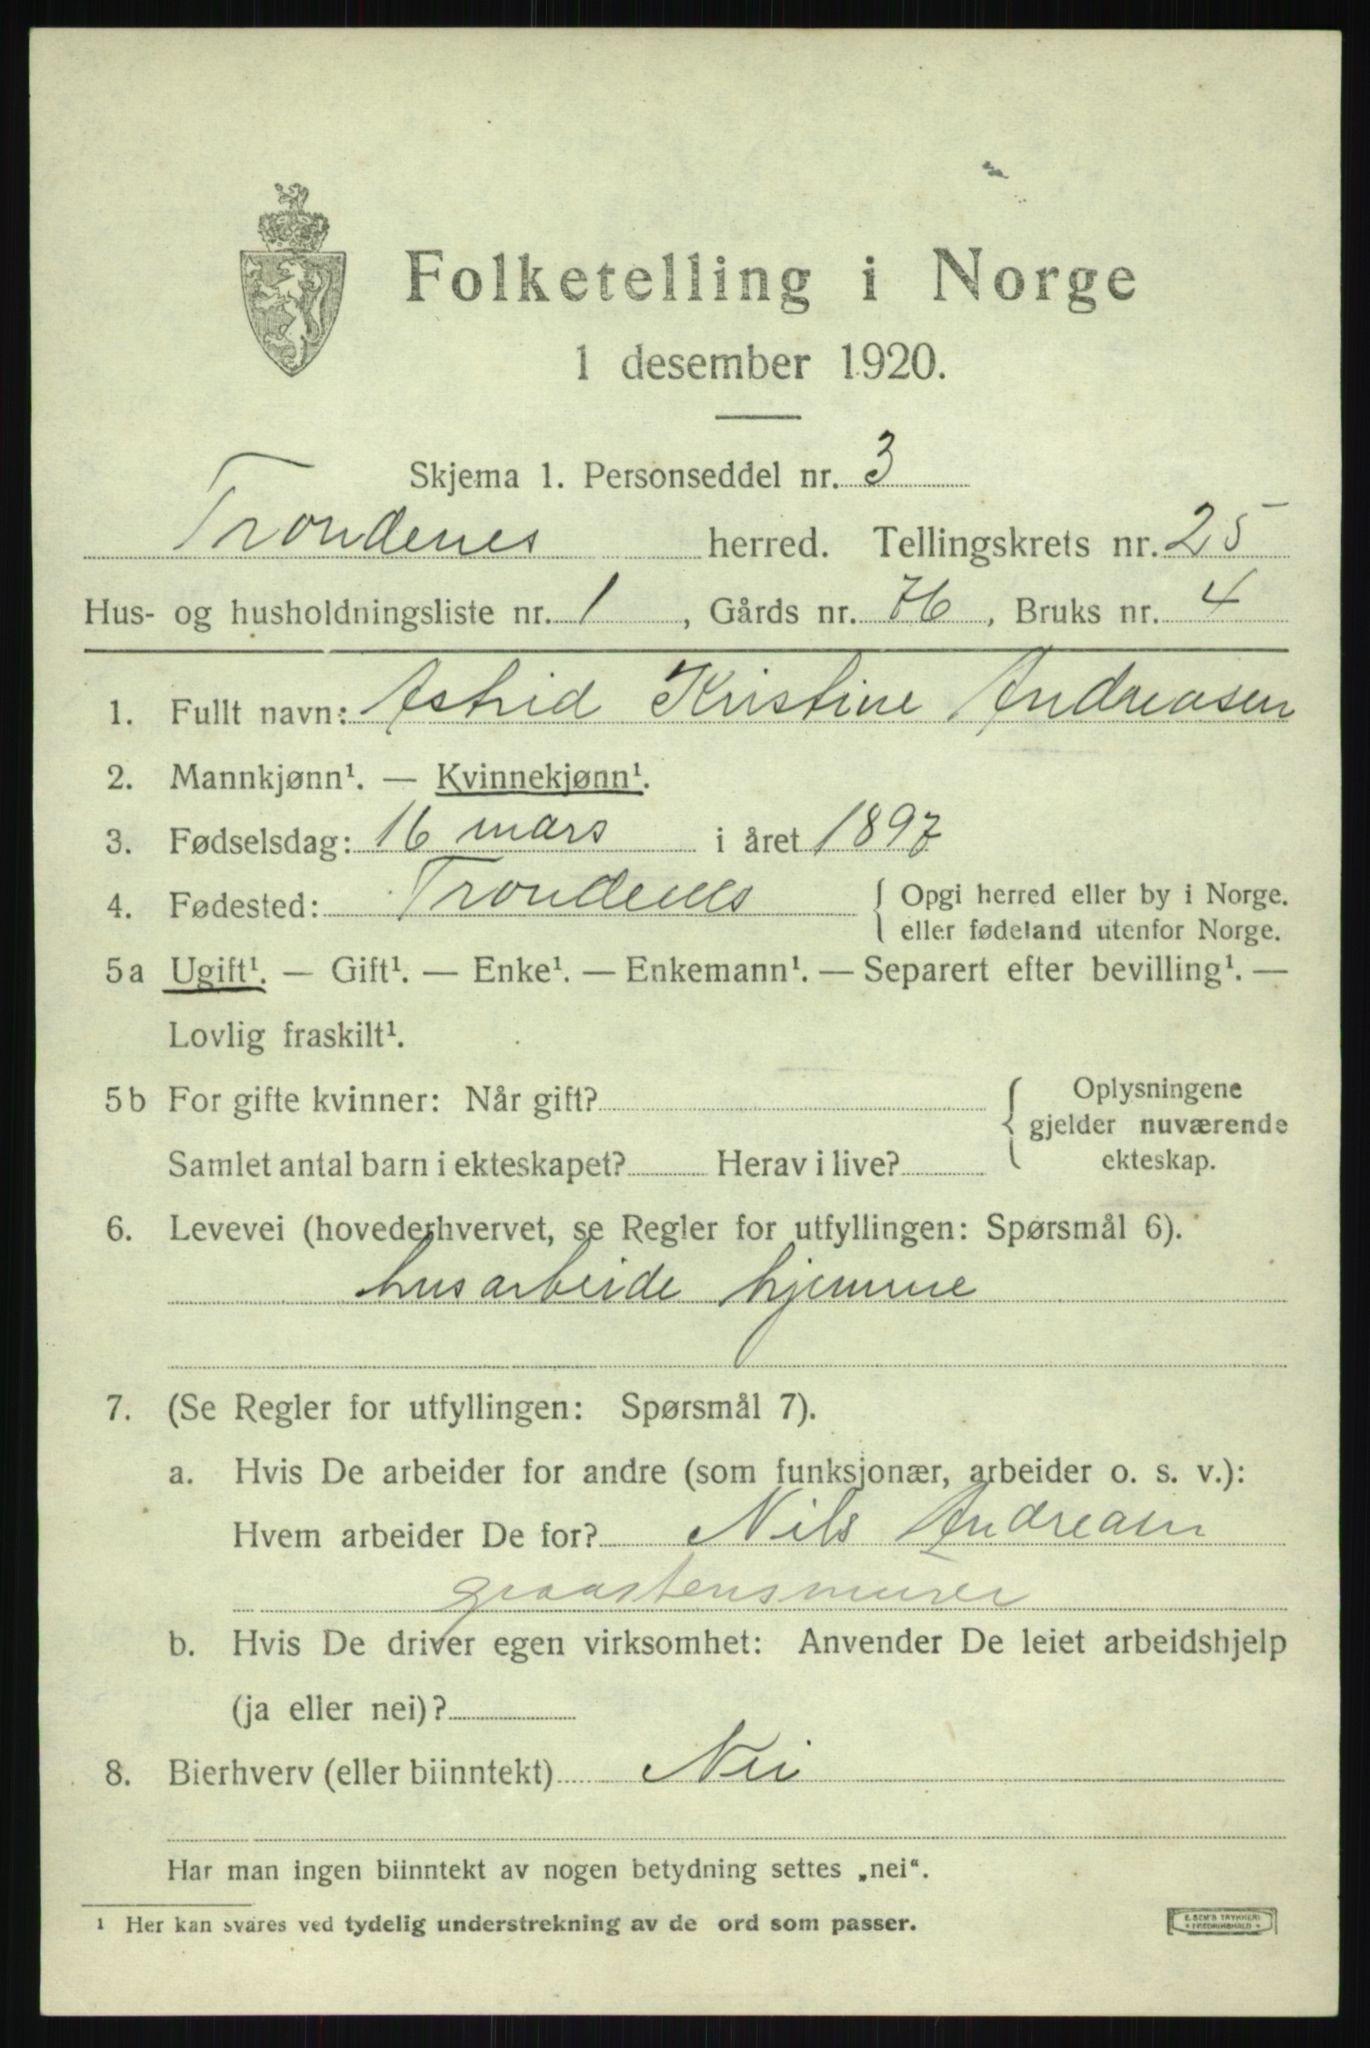 Folketelling i Norge
1 desember 1920.
Skjema 1. Personseddel nr. 3
Trondenes herred. Tellingskrets nr. 25
Hus- og husholdningsliste nr. 1, Gårds nr. 76, Bruks nr. 4
1. Fullt navn: Astrid Kristine Andreasen
2. Mannkjønn¹. — Kvinnekjønn¹.
3. Fødselsdag: 16 mars i året 1897
4. Fødested: Trondenes { Opgi herred eller by i Norge.
eller fødeland utenfor Norge.
5a Ugift¹. — Gift¹. — Enke¹. — Enkemann¹. — Separert efter bevilling¹. —
Lovlig fraskilt¹.
5b For gifte kvinner: Når gift? { Oplysningene
gjelder nuværende
Samlet antal barn i ekteskapet? Herav i live? ekteskap.
6. Levevei (hovederhvervet, se Regler for utfyllingen: Spørsmål 6).
husarbeide hjemme
7. (Se Regler for utfyllingen: Spørsmål 7).
a. Hvis De arbeider for andre (som funksjonær, arbeider o. s. v.):
Hvem arbeider De for? Nils Andreasen
graastensmurer
b. Hvis De driver egen virksomhet: Anvender De leiet arbeidshjelp
(ja eller nei)?
8. Bierhverv (eller biinntekt) Nei
Har man ingen biinntekt av nogen betydning settes „nei“.
¹ Her kan svares ved tydelig understrekning av de ord som passer.
E. SEM'S TRYKKERI
* FREDRIKSHALD *